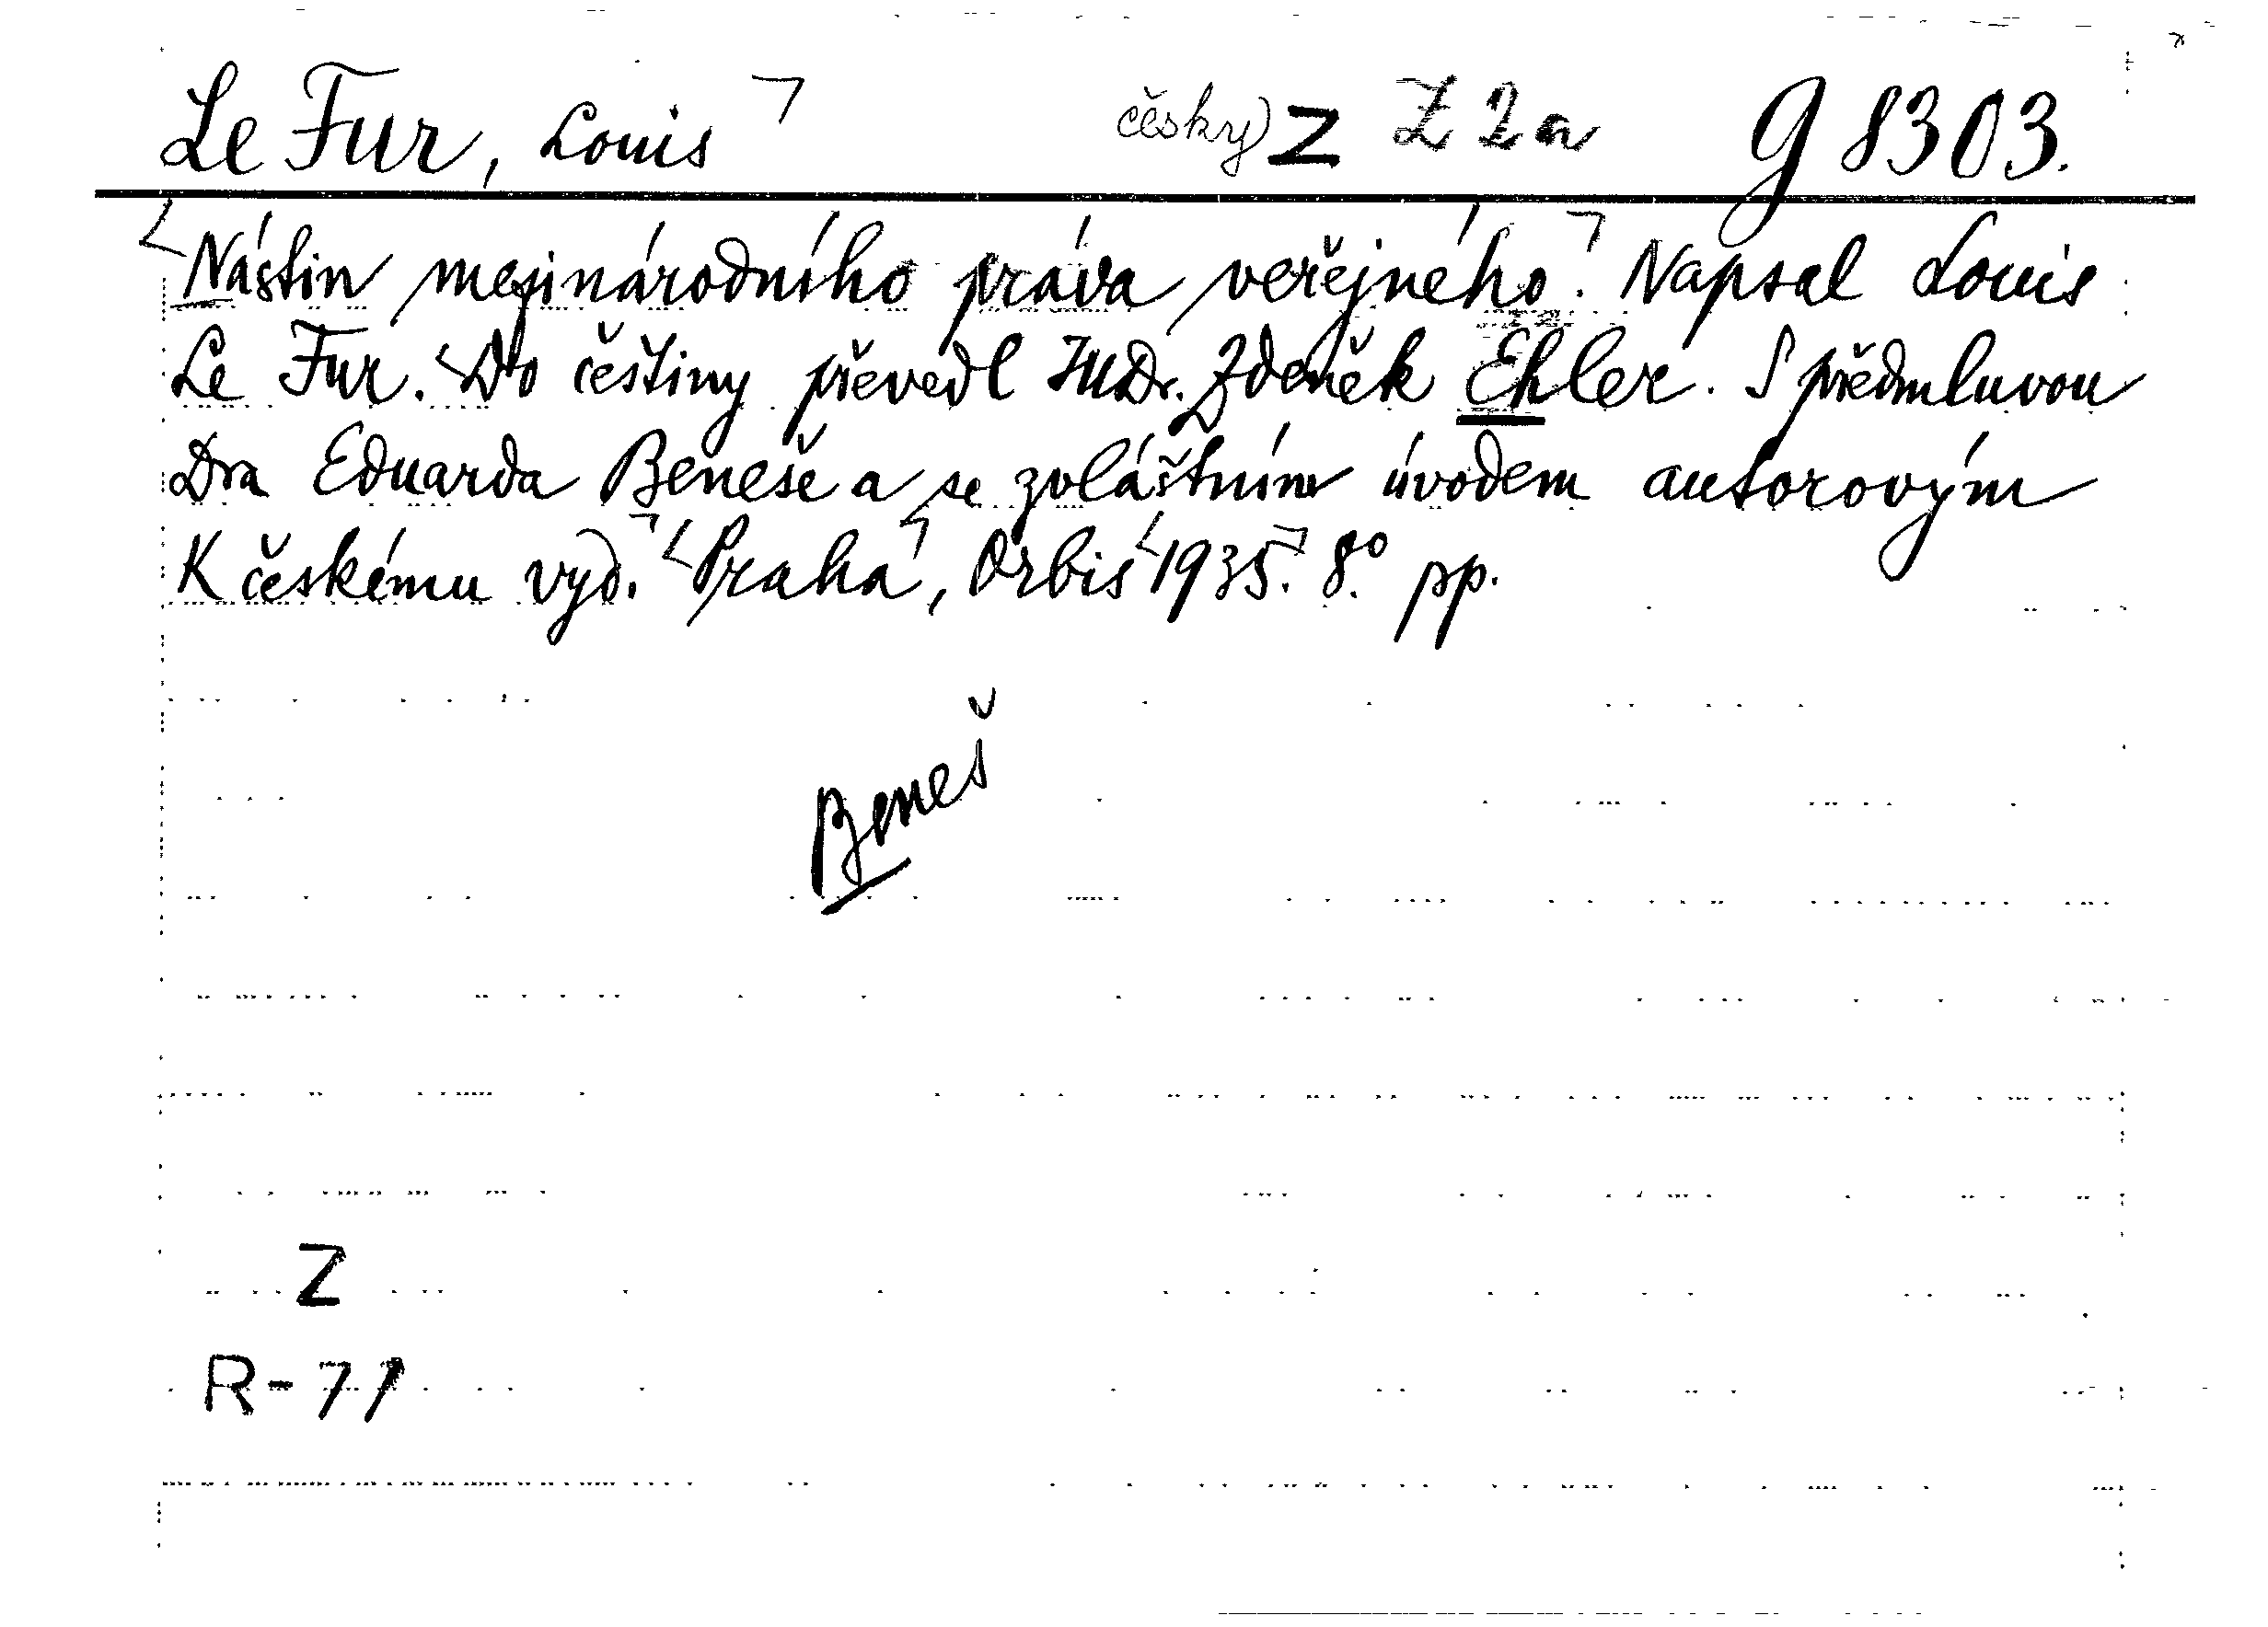 Le Fur, Louis česky Z Z 2a G 8303.
Nástin mezinárodního práva veřejného. Napsal Louis
Le Fur. Do češtiny převedl JUDr. Zdeněk Ehler. S předmluvou
Dra Eduarda Beneše a se zvláštním úvodem autorovým
K českému vyd. Praha, Orbis 1935. 8.° pp.
Beneš
Z
R-71